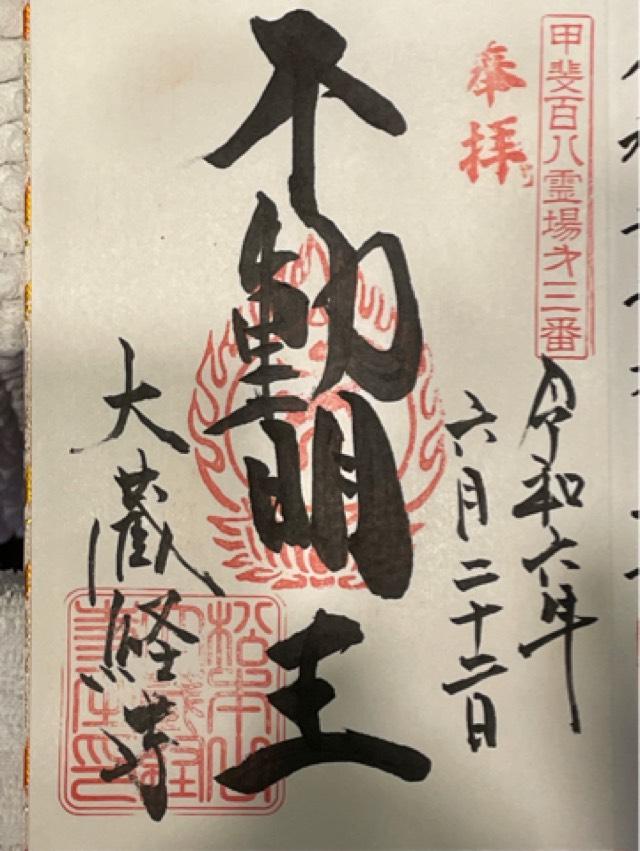 甲斐百八霊場才三番
奉拝
令和六年
六月二十二日
不動明王
大蔵経寺